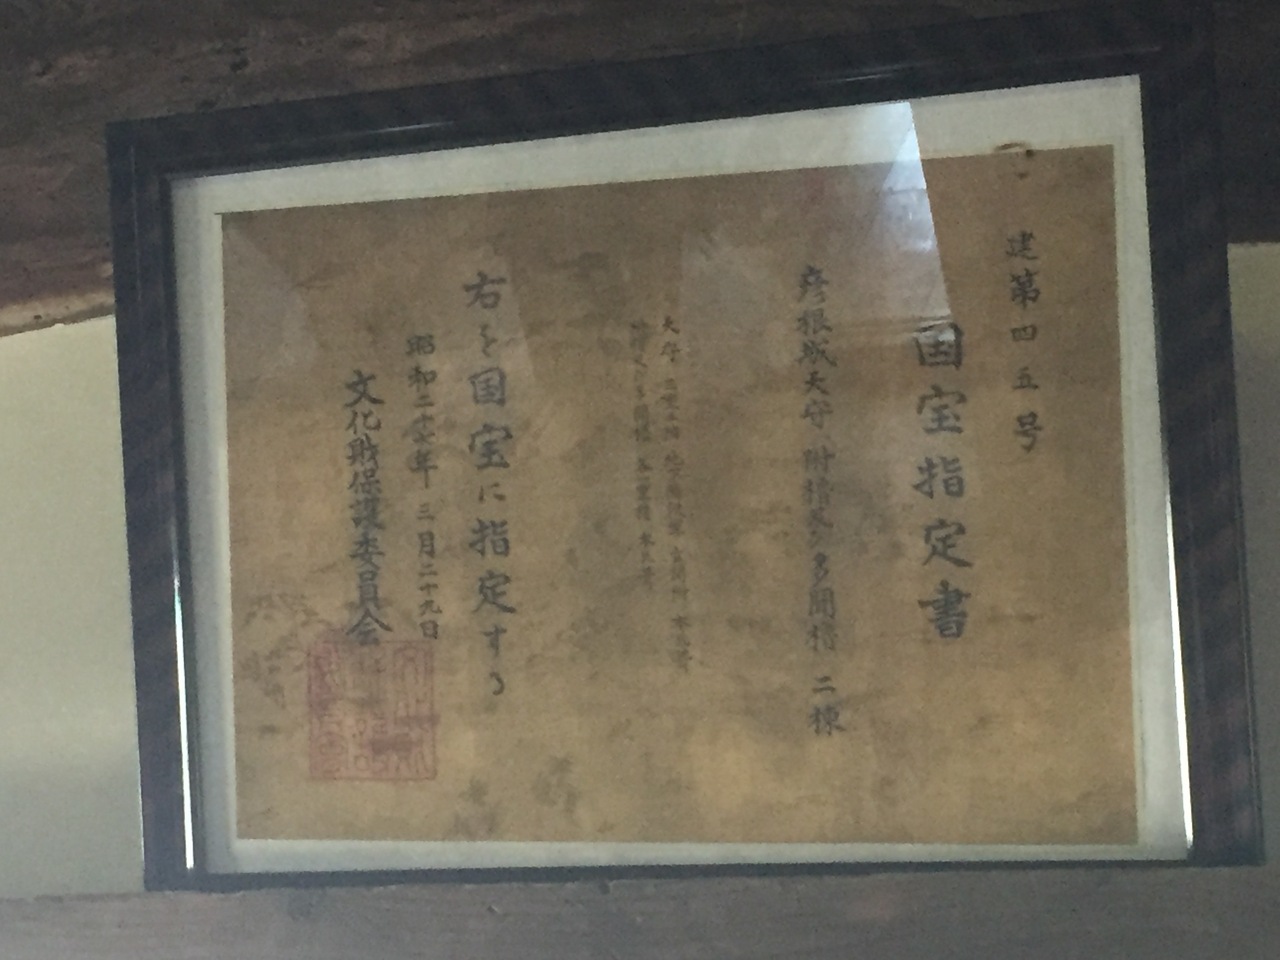 建第四五号
国宝指定書
彦根城天守 附櫓及び多聞櫓 二棟
天守 三重三階 地下階段室 玄関附 本瓦葺
各一重櫓 本瓦葺
右を国宝に指定する
昭和二十七年 三月二十九日
文化財保護委員会